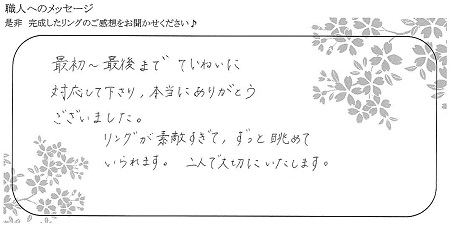 職人へのメッセージ
是非 完成したリングのご感想をお聞かせください♪
最初～最後まで ていねいに
対応して下さり、本当にありがとう
ございました。
リングが素敵すぎて、ずっと眺めて
いられます。 二人で大切にいたします。